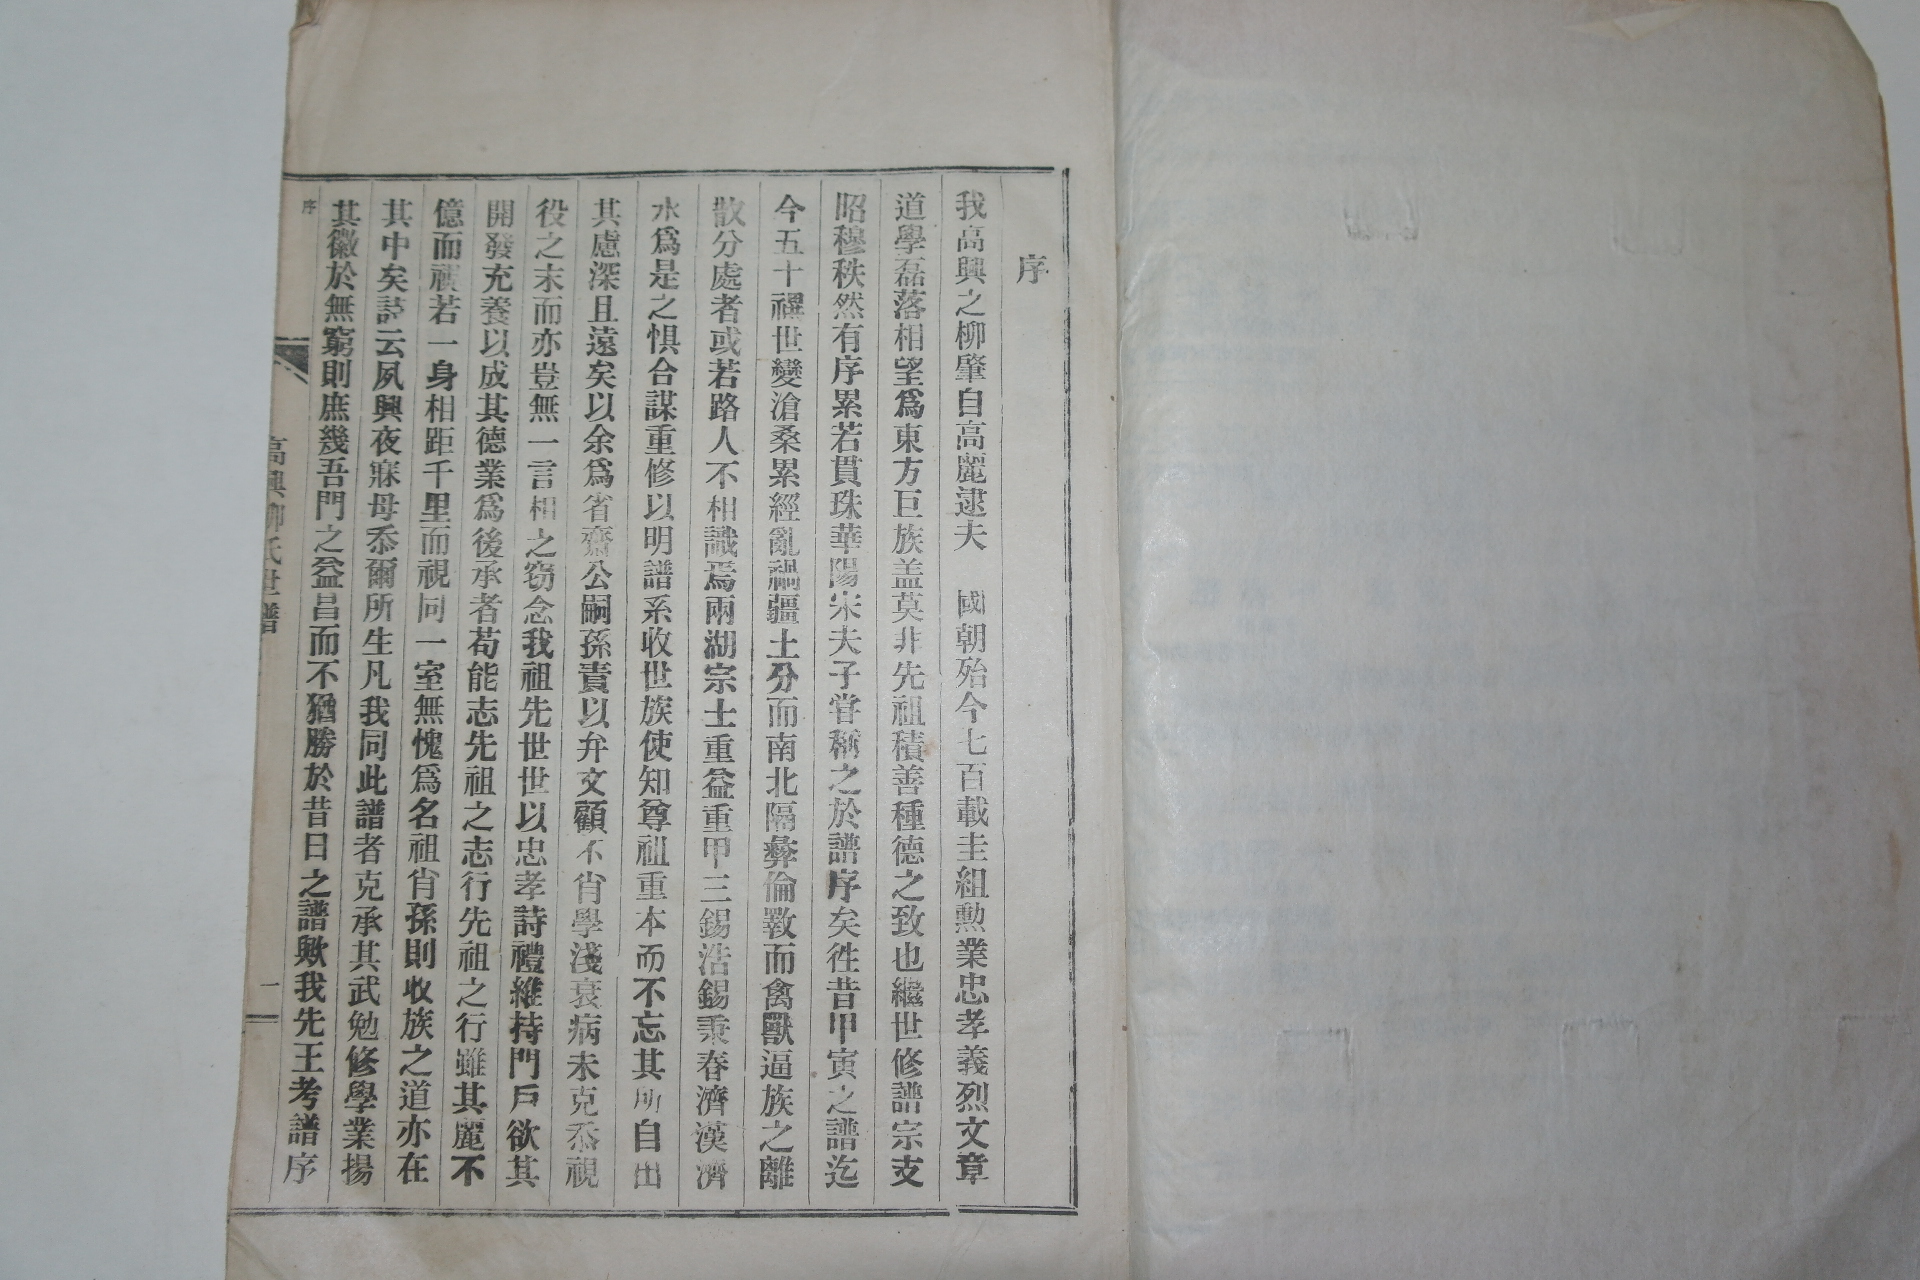 序
我高興之柳肇自高麗逮夫　國朝殆今七百載圭組勳業忠孝義烈文章
道學磊落相望爲東方巨族盖莫非先祖積善種德之致也繼世修譜宗支
昭穆秩然有序累若貫珠華陽宋夫子甞稱之於譜序矣徃昔甲寅之譜迄
今五十禩世變滄桑累經亂禍疆土分而南北隔彝倫斁而禽獸逼族之離
散分處者或若路人不相識焉兩湖宗士重益重甲三錫浩錫秉春濟漢濟
水爲是之惧合謀重修以明譜系收世族使知尊祖重本而不忘其所自出
其慮深且遠矣以余爲省齋公嗣孫責以弁文顧不肖學淺衰病未克忝視
役之末而亦豈無一言相之窃念我祖先世世以忠孝詩禮維持門戶欲其
開發充養以成其德業爲後承者苟能志先祖之志行先祖之行雖其麗不
億而視若一身相距千里而視同一室無愧爲名祖肖孫則收族之道亦在
其中矣詩云夙興夜寐毋忝爾所生凡我同此譜者克承其武勉修學業揚
其徽於無窮則庶幾吾門之益昌而不猶勝於昔日之譜歟我先王考譜序
序
高興柳氏世譜
一